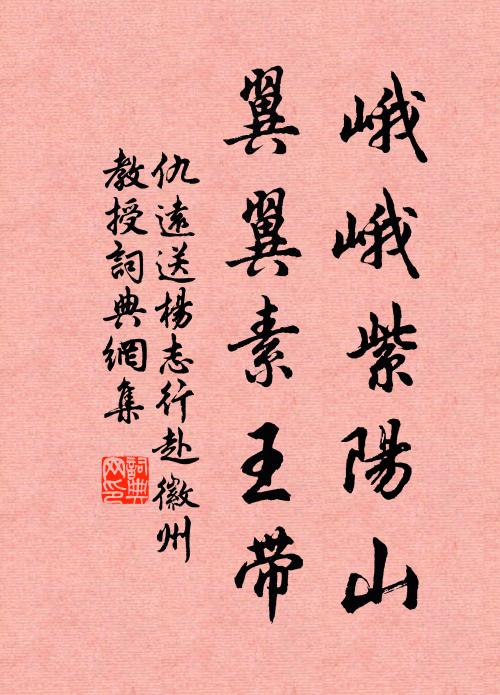 峨峨紫陽山
翼翼素王帯
仇遠送楊志行赴徽州
教授詞典網集
詞典
网印